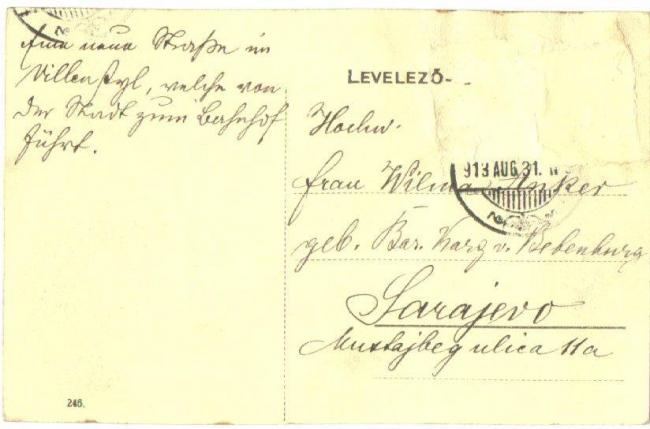 Eine neue Straße im
Villenstyl, welche von
der Stadt zum Bahnhof
führt.
LEVELEZŐ-
Hochw.
Frau Wilma Anker
geb. Bar. Karg v. Bebenburg
Sarajevo
Mustajbeg ulica 11a
913 AUG.31.
246.